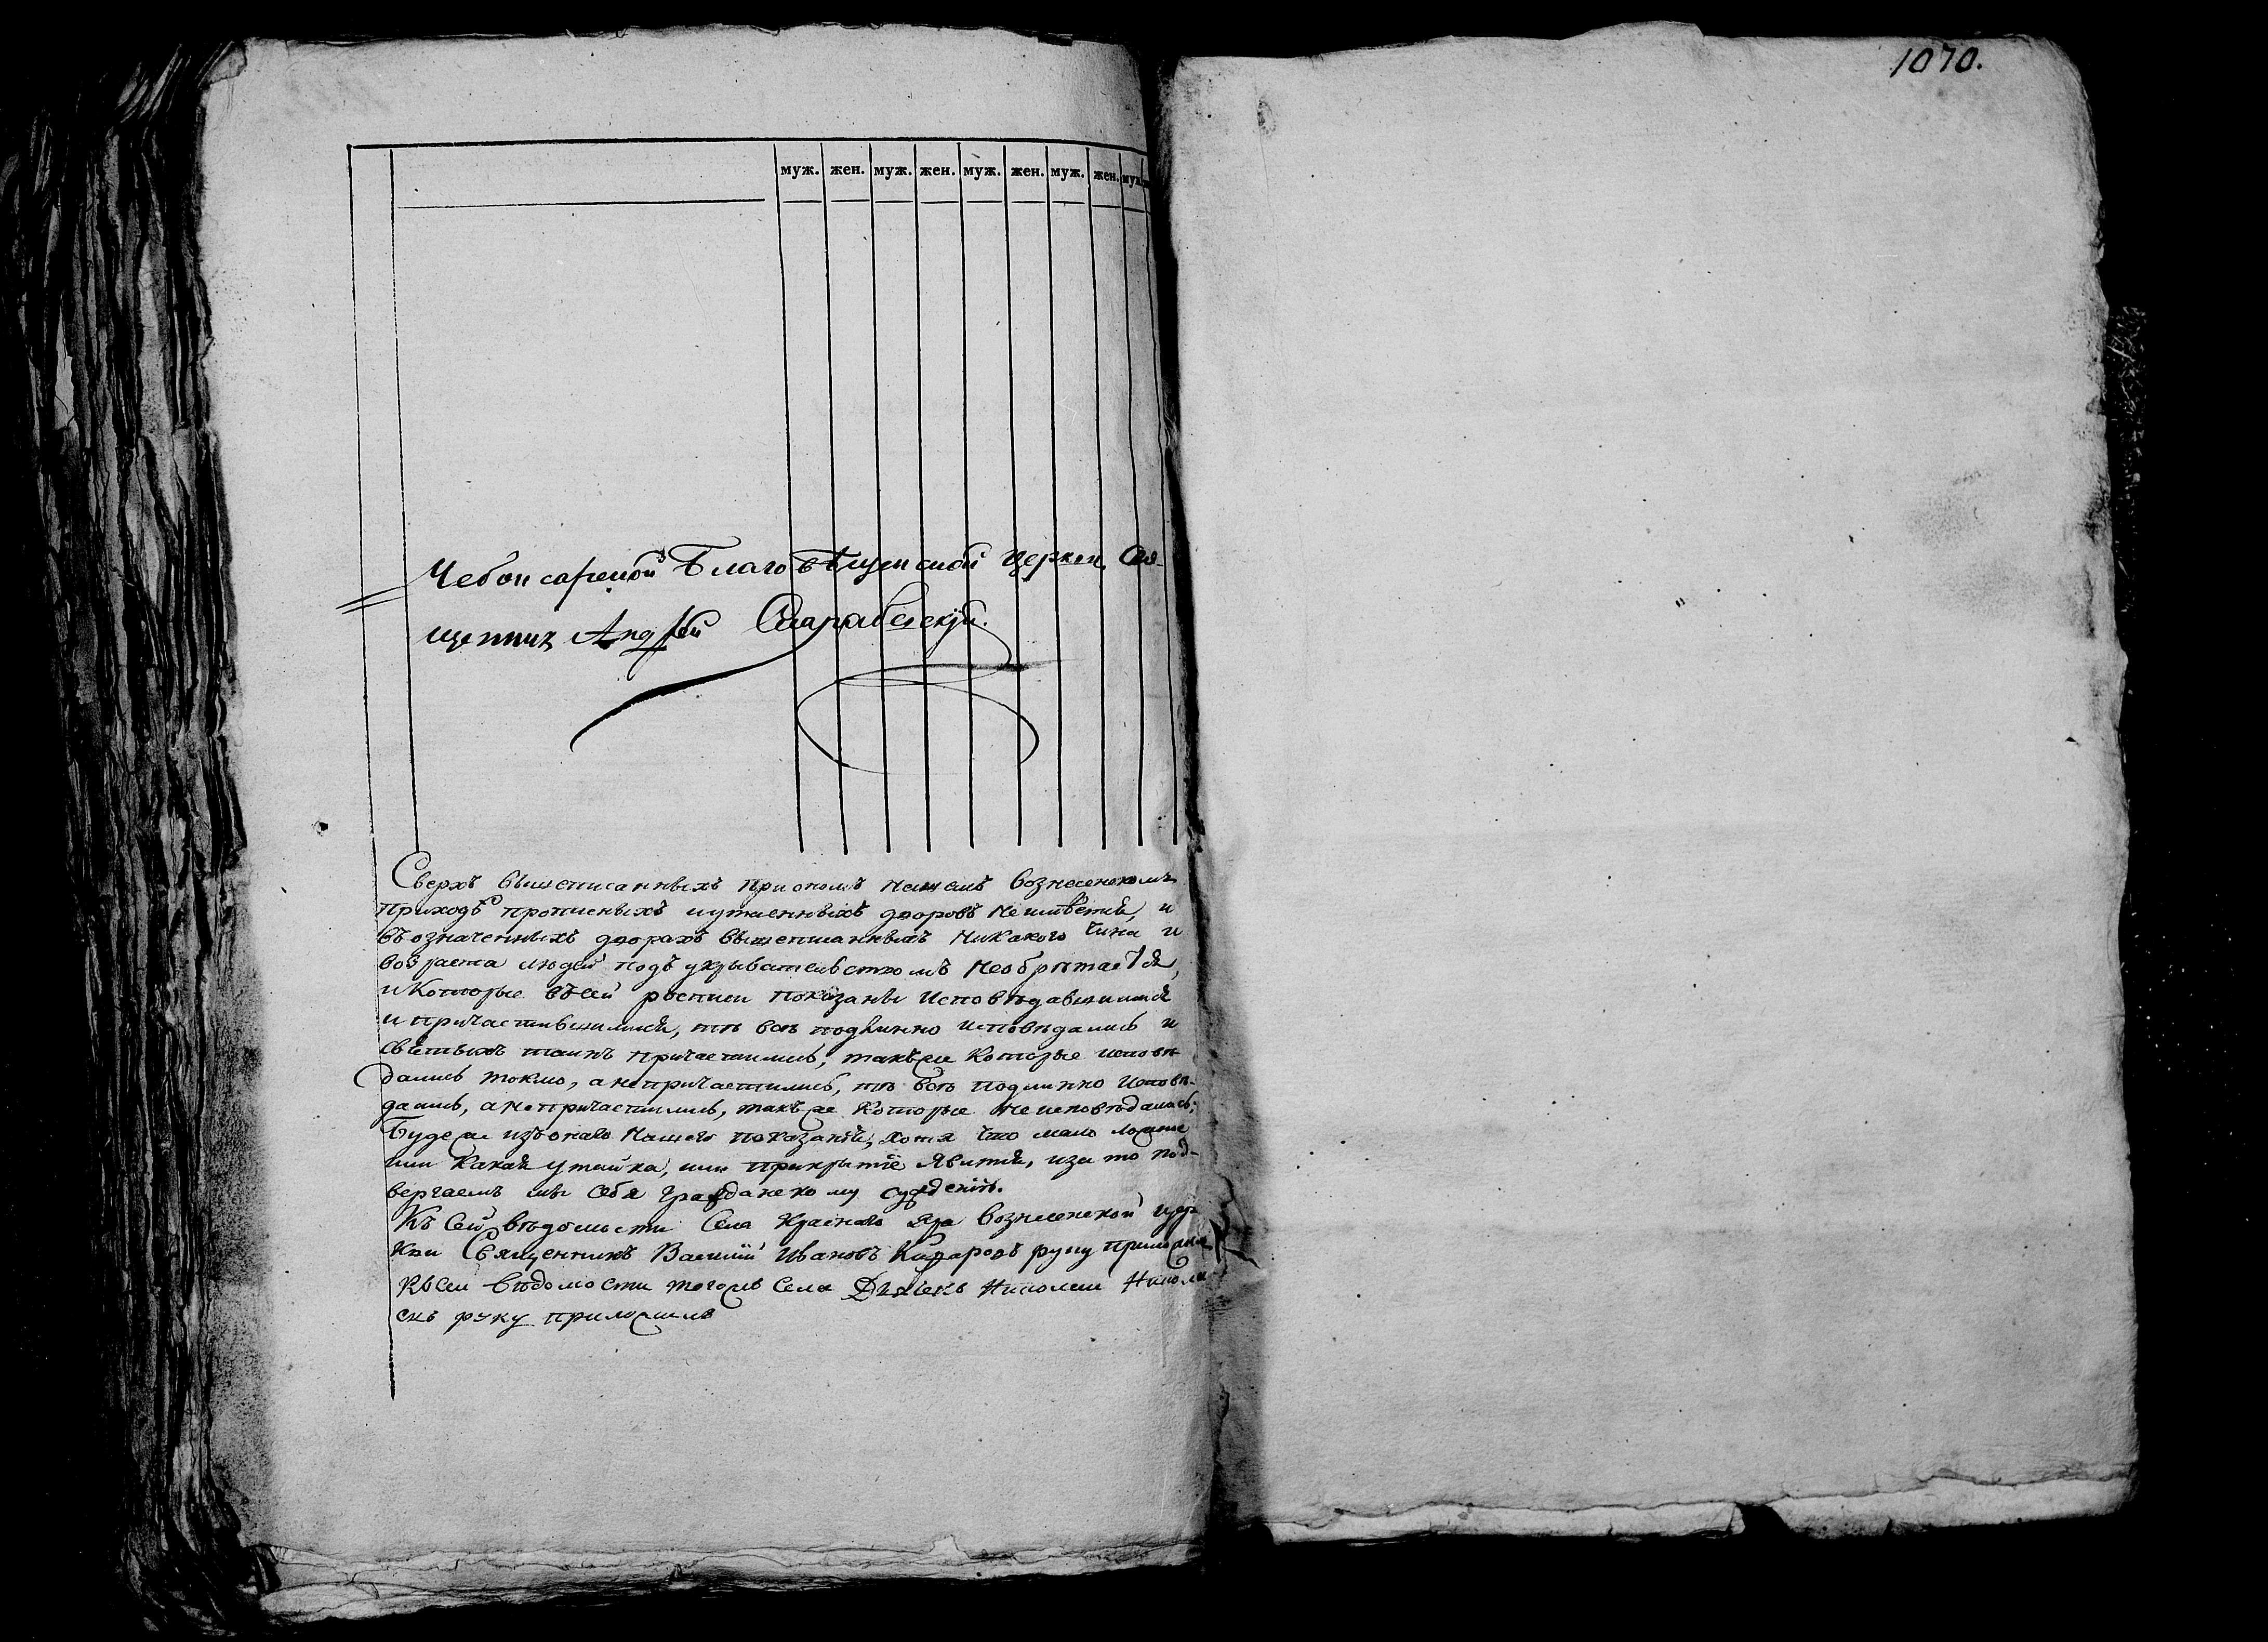 1070.
муж. жен. муж. жен. муж. жен. муж. жен. муж.
Чебоксарской Благовѣщенской церкви Свя-
щенник Андрей
Сверхъ вышеписанныхъ при ономъ нашемъ вознесенскомъ
приходѣ прописныхъ и утаенныхъ дворовъ не имѣется, и
въ означенныхъ дворахъ вышеписанныхъ никакого чина и
возраста людей подъ укрывательствомъ не обрѣтается,
и которые въ сей росписи показаны исповѣдавшимися
и причастившимися, тѣ всѣ подлинно исповѣдались и
святыхъ таинъ причастились, такъ же которые исповѣ-
дались токмо, а не причастились, тѣ всѣ подлинно исповѣ-
дались, а не причастились, такъ же которые не исповѣдались;
Буде же изъ онаго нашего показанія, хотя что мало ложно
или какая утайка, или прикрытіе явится, и за то под-
вергаемъ мы себя гражданскому сужденію.
Къ сей вѣдомости села Краснаго Яра вознесенской цер-
кви Священникъ Василий Ивановъ руку приложилъ
Къ сей вѣдомости того жъ села Дьячекъ Николай Никола-
евъ руку приложилъ